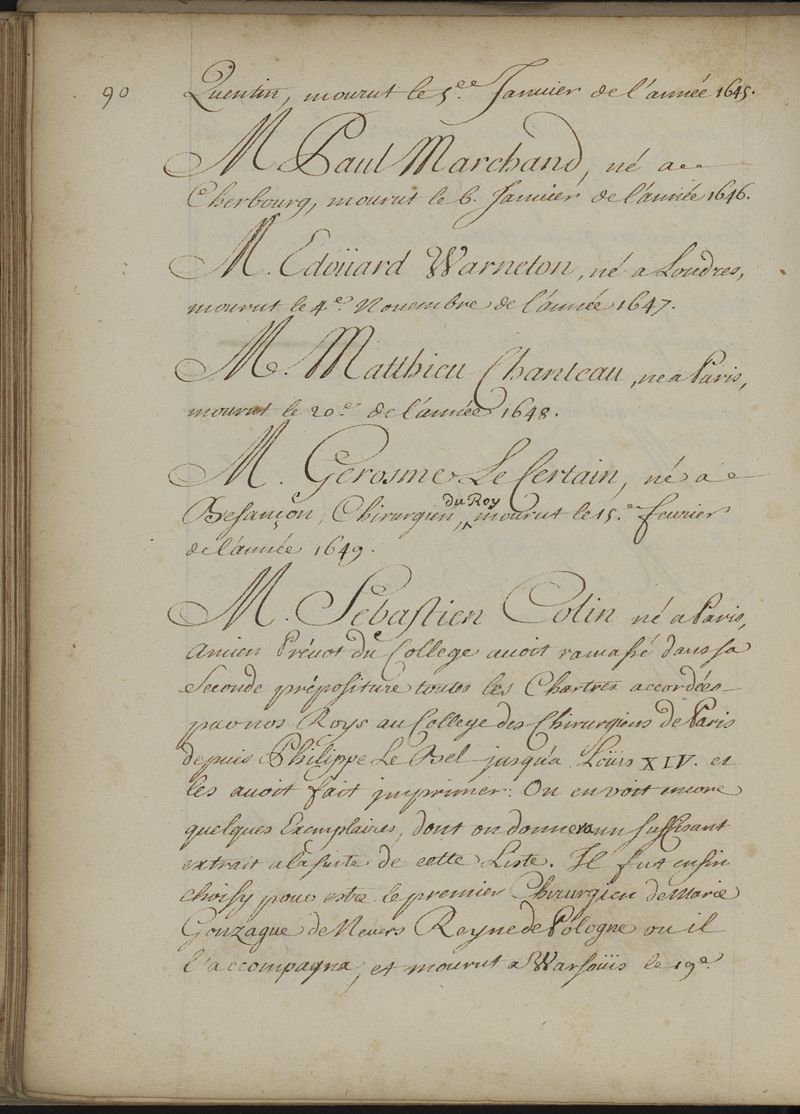 90
Quentin, mourut le 5.ee Januier de l'année 1645.
M. Paul Marchand, né a
Cherbourg, mourut le 6. Januier de l'année 1646.
M. Edoüard Warneton, né a Londres,
mourut le 4.e Nouembre de l'année 1647.
M. Matthieu Chanteau, né a Paris,
mourut le 20.e de l'année 1648.
M. Gerosme Le Certain, né a
Besançon, Chirurgien du Roy, mourut le 15.e feurier
de l'année 1649.
M. Sébastien Colin né a Paris,
Ancien Préuot du College auoit ramassé dans sa
Seconde prépositure toutes les Chartres accordées
par nos Roys au College des Chirurgiens de Paris
depuis Philippe Le Bel jusqu'a Loüis XIV. et
les auoit fait jmprimer. On en voit encore
quelques Exemplaires, dont on donnera un suffisant
extrait a la suite de cette Liste. Il fut enfin
choisy pour estre le premier Chirurgien de Marie
Gonzague de Neuers Reyne de Pologne ou il
l'accompagna, et mourut a Warsoüis le 19.e